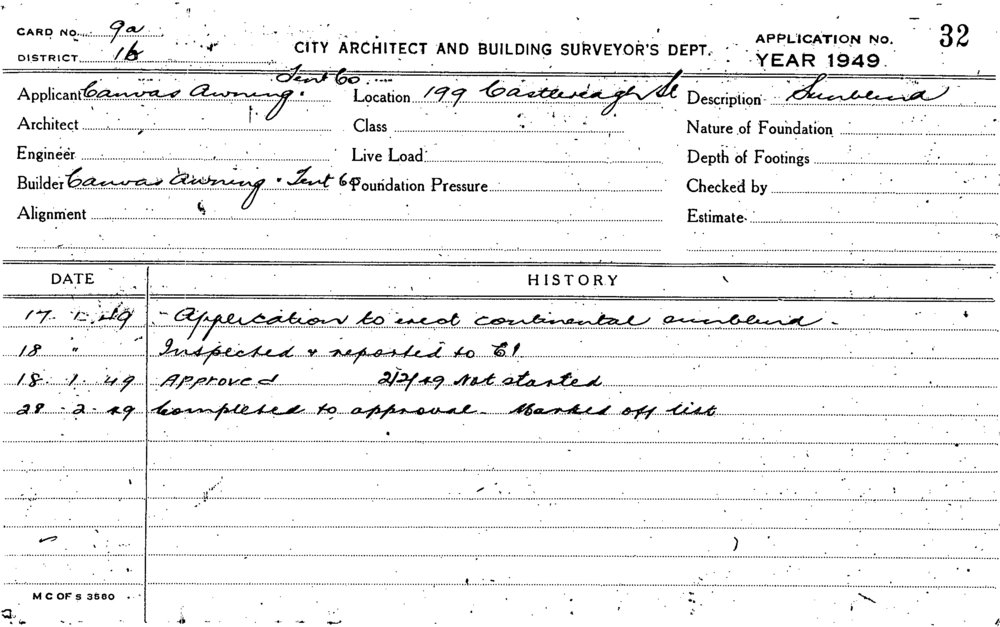 CARD NO. 9a
DISTRICT 1b
CITY ARCHITECT AND BUILDING SURVEYOR'S DEPT.
APPLICATION NO. 32
YEAR 1949
Applicant Canvas Awning. Tent Co Location 199 Castlereagh St Description Sunblind
Architect Class Nature of Foundation
Engineer Live Load Depth of Footings
Builder Canvas Awning. Tent Co Foundation Pressure Checked by
Alignment Estimate
DATE HISTORY
17 1 49 - Application to erect continental sunblind.
18 " Inspected & reported to C!
18 1 49 Approved 2/2/49 Not started
28 - 2 - 49 Completed to approval. Marked off list
M C OF S 3580